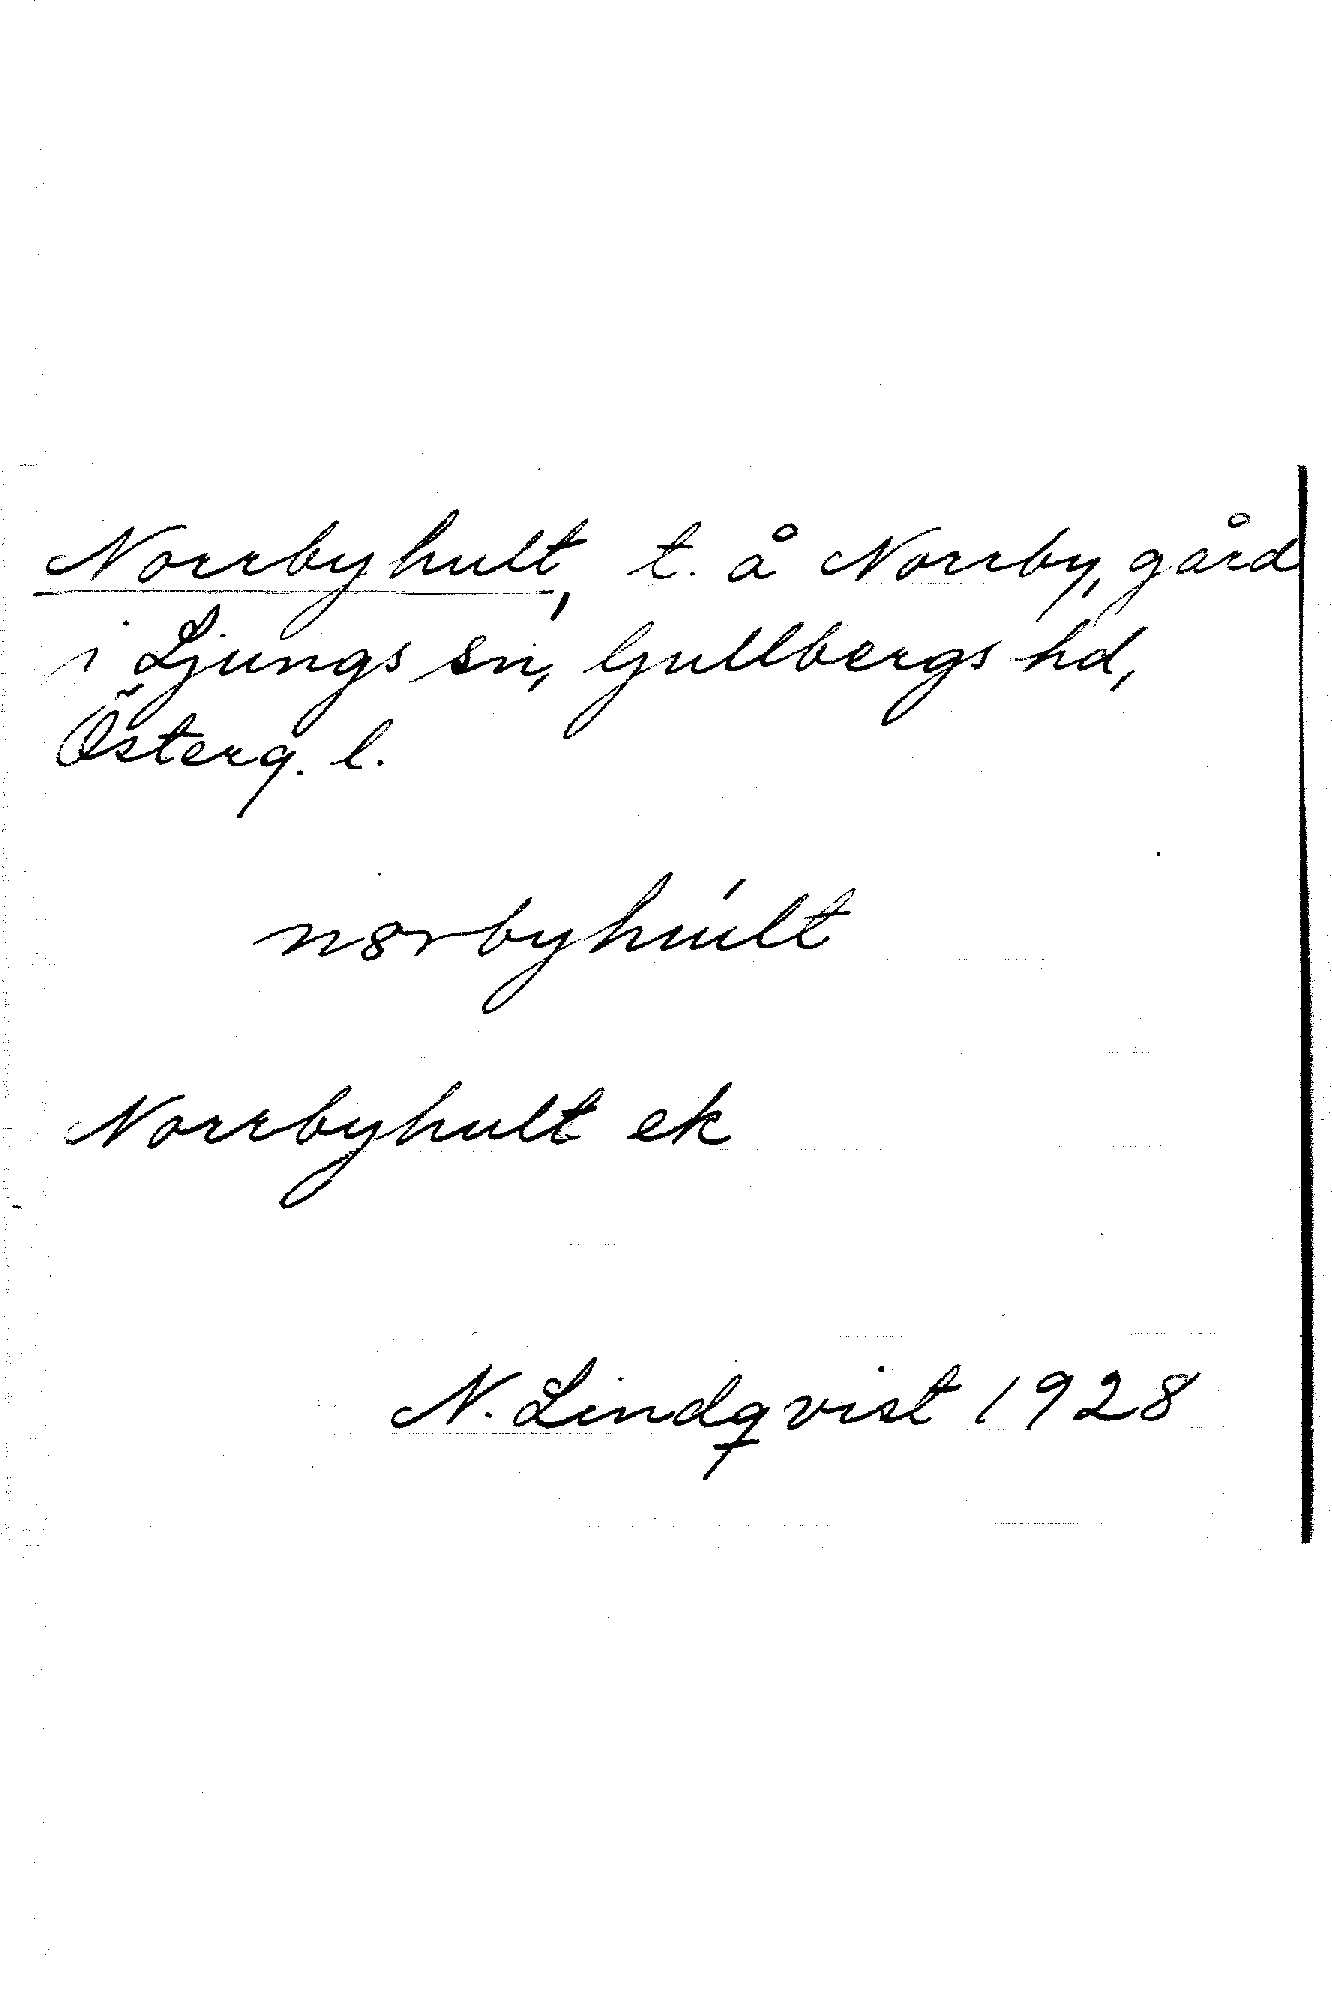 Norrbyhult, t. å Norrby, gård
i Ljungs sn, Gullbergs hd,
Österg. l.
nørbyhúlt
Norrbyhult ek
N. Lindqvist 1928